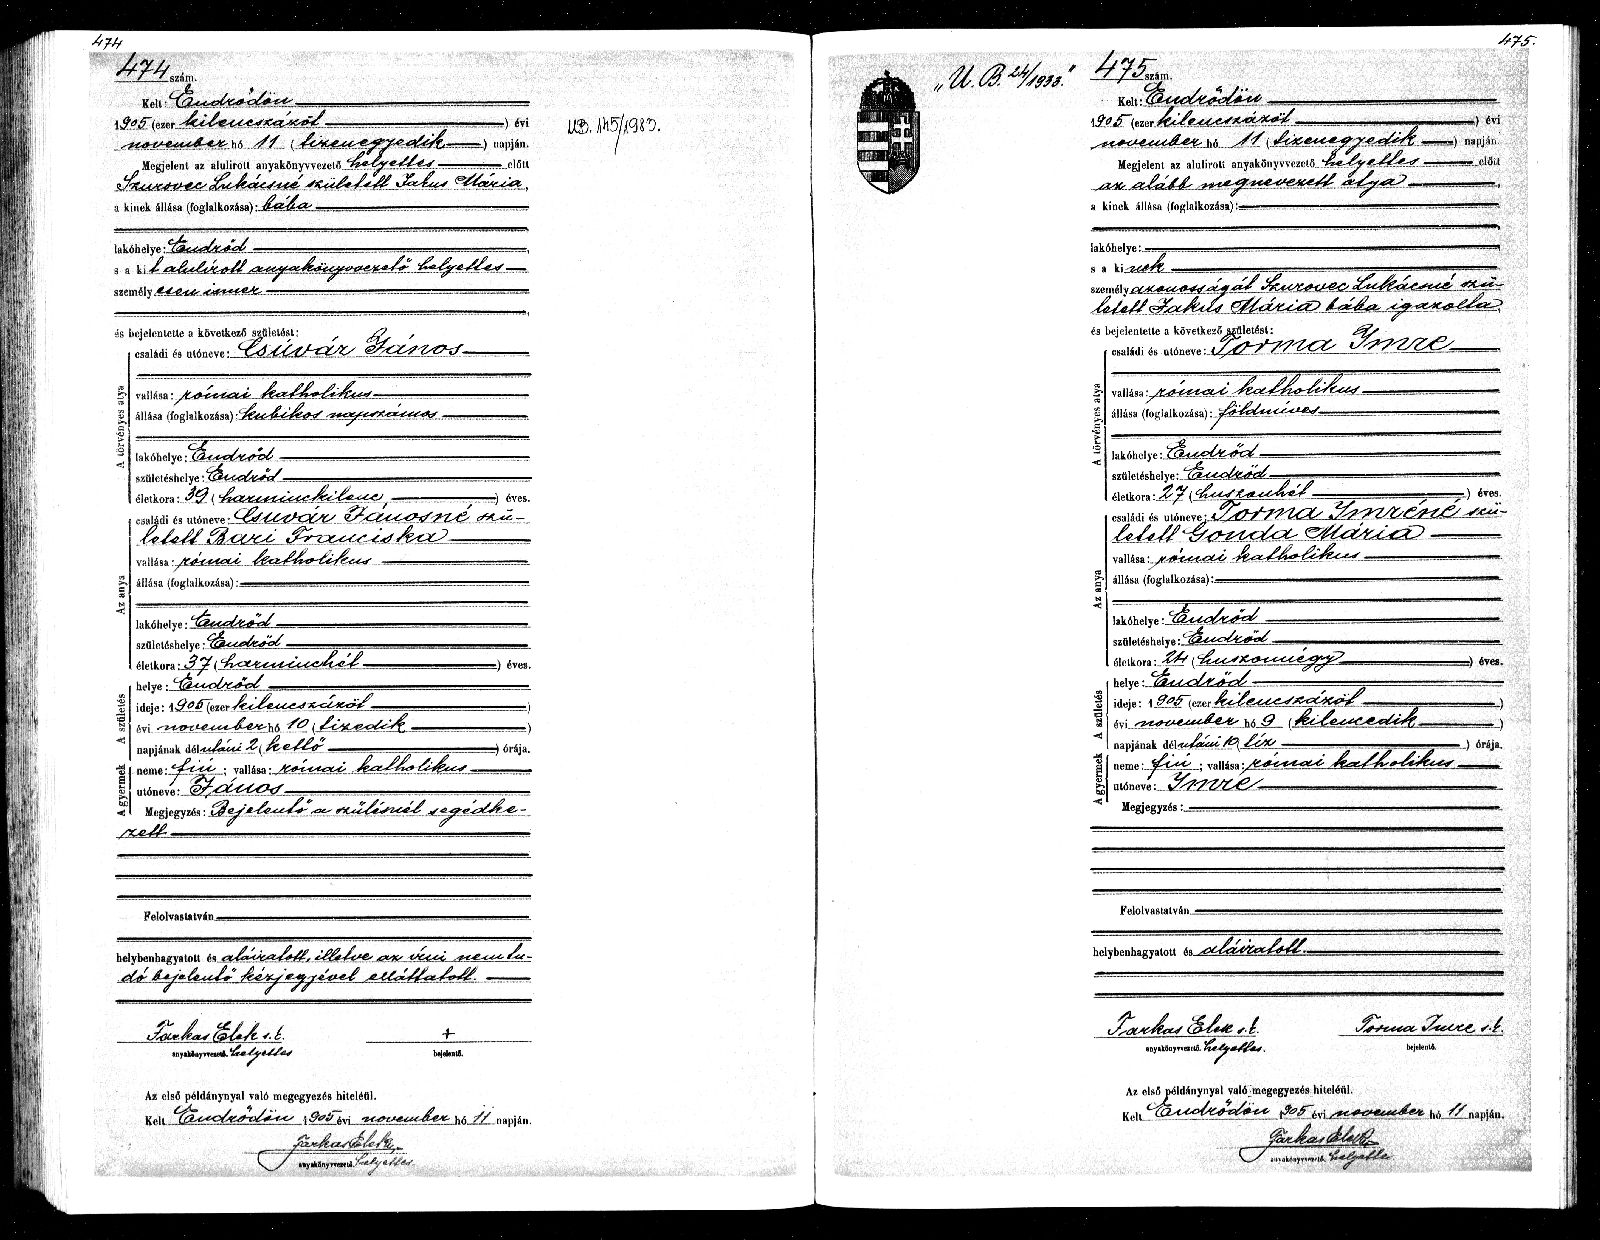 474
474 szám.
Kelt: Endrődön
1905 (ezer kilencszázöt) évi
november hó 11 (tizenegyedik) napján.
Megjelent az alulirott anyakönyvvezető helyettes előtt
Szurovec Lukácsné született Jakus Mária,
a kinek állása (foglalkozása): bába
lakóhelye: Endrőd,
s a kit alulírott anyakönyvvezető helyettes
személyesen ismer
és bejelentette a következő születést:
A törvényes atya
családi és utóneve: Csúvár János
vallása: római katholikus
állása (foglalkozása): kubikos napszámos
lakóhelye: Endrőd
születéshelye: Endrőd
életkora: 39 (harminckilenc) éves.
Az anya
családi és utóneve: Csuvár Jánosné szü-
letett Bari Franciska
vallása: római katholikus
állása (foglalkozása):
lakóhelye: Endrőd
születéshelye: Endrőd
életkora: 37 (harminchét) éves.
A születés
helye: Endrőd
ideje: 1905 (ezer kilencszázöt)
évi november hó 10 (tizedik)
napjának délutáni 2 (kettő) órája.
A gyermek
neme: fiú; vallása: római katholikus
utóneve: János
Megjegyzés: Bejelentő a szülésnél segédke-
zett
Felolvastatván
helybenhagyatott és aláiratott, illetve az írni nem tu-
dó bejelentő kézjegyével elláttatott.
Farkas Elek s.k. +
anyakönyvvezető. helyettes bejelentő.
Az első példánynyal való megegyezés hiteléül.
Kelt Endrődön 1905 évi november hó 11 napján.
Farkas Elek
anyakönyvvezető. helyettes
UB. 145/1983.
475.
"U. B. 24/1933."
475 szám.
Kelt: Endrődön
1905 (ezer kilencszázöt) évi
november hó 11 (tizenegyedik) napján.
Megjelent az alulirott anyakönyvvezető helyettes előtt
az alább megnevezett atya,
a kinek állása (foglalkozása):
lakóhelye:
s a kinek
személyazonosságát Szurovec Lukácsné szü-
letett Jakus Mária bába igazolta,
és bejelentette a következő születést:
A törvényes atya
családi és utóneve: Torma Imre
vallása: római katholikus
állása (foglalkozása): földmíves
lakóhelye: Endrőd
születéshelye: Endrőd
életkora: 27 (huszonhét) éves.
Az anya
családi és utóneve: Torma Imréné szü-
letett Gonda Mária
vallása: római katholikus
állása (foglalkozása):
lakóhelye: Endrőd
születéshelye: Endrőd
életkora: 24 (huszonnégy) éves.
A születés
helye: Endrőd
ideje: 1905 (ezer kilencszázöt)
évi november hó 9 (kilencedik)
napjának délutáni 10 (tíz) órája.
A gyermek
neme: fiú; vallása: római katholikus
utóneve: Imre
Megjegyzés:
Felolvastatván
helybenhagyatott és aláiratott.
Farkas Elek s.k. Torma Imre s.k.
anyakönyvvezető. helyettes. bejelentő.
Az első példánynyal való megegyezés hiteléül.
Kelt Endrődön 1905 évi november hó 11 napján.
Farkas Elek
anyakönyvvezető. helyettes